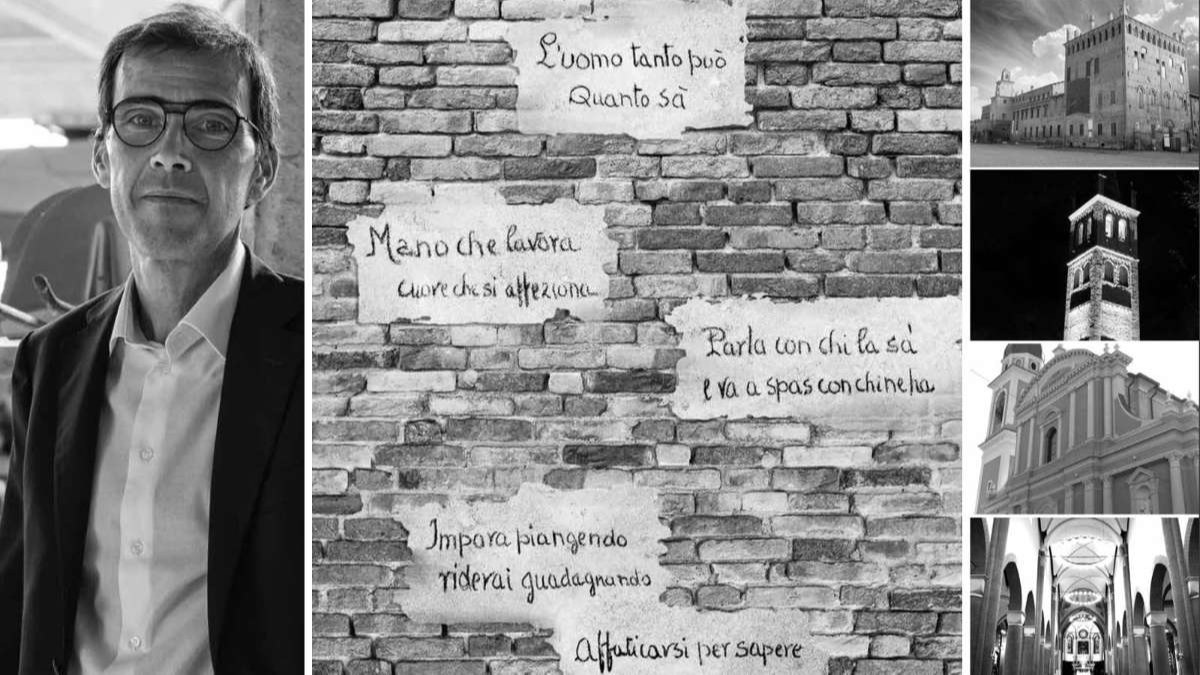 L'uomo tanto può
Quanto sà
Mano che lavora
cuore che si affeziona
Parla con chi la sà
e va a spas con chi ne ha
Impara piangendo
riderai guadagnando
Affaticarsi per sapere